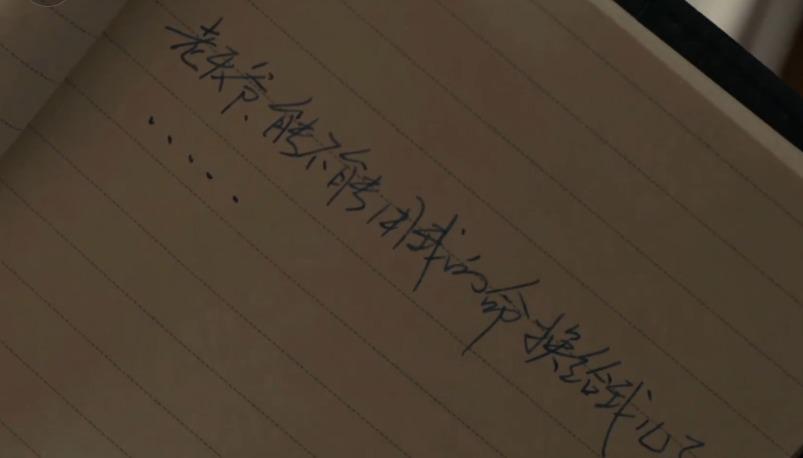 老天爷、能不能用我的命换给我儿子
.....